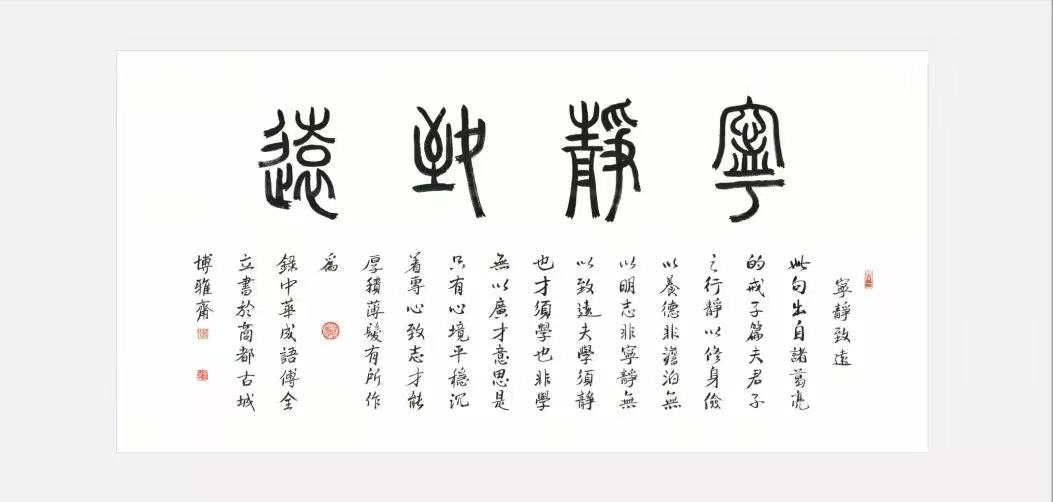 寧靜致遠
寧靜致遠
此句出自諸葛亮
的戒子篇夫君子
之行靜以修身儉
以養德非澹泊無
以明志非寧靜無
以致遠夫學須靜
也才須學也非學
無以廣才意思是
只有心境平穩沉
着專心致志才能
厚積薄髮有所作
爲
錄中華成語傅全
立書於商都古城
博雅齋